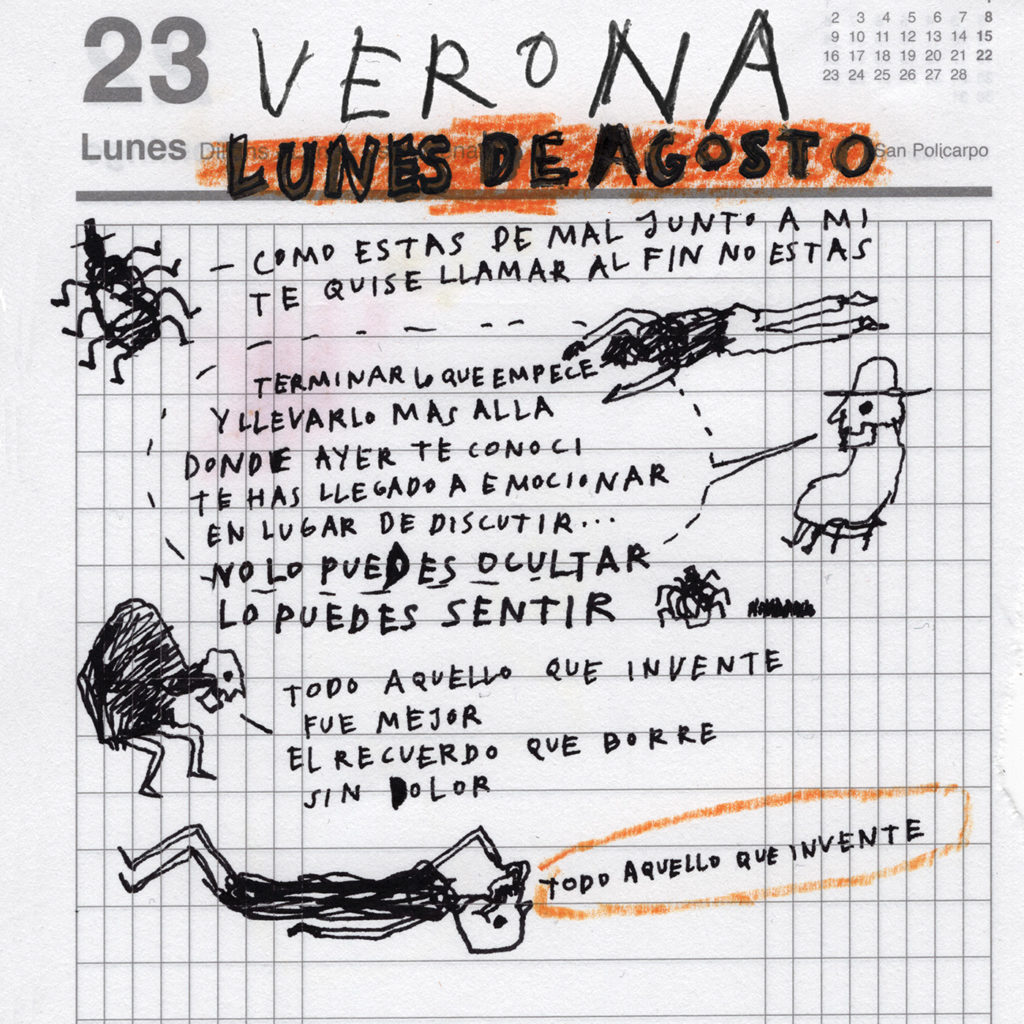 23
VERONA
2 3 4 5 6 7 8
9 10 11 12 13 14 15
16 17 18 19 20 21 22
23 24 25 26 27 28
Lunes
LUNES DE AGOSTO
San Policarpo
– COMO ESTAS DE MAL JUNTO A MI
TE QUISE LLAMAR AL FIN NO ESTAS
TERMINAR LO QUE EMPECE
Y LLEVARLO MAS ALLA
DONDE AYER TE CONOCI
TE HAS LLEGADO A EMOCIONAR
EN LUGAR DE DISCUTIR...
-NO LO PUEDES OCULTAR
LO PUEDES SENTIR
TODO AQUELLO QUE INVENTE
FUE MEJOR
EL RECUERDO QUE BORRE
SIN DOLOR
TODO AQUELLO QUE INVENTE